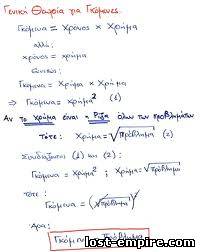 Γενική Θεωρία για Γκόμενες
Γκόμενα = Χρόνος × Χρήμα
αλλά:
χρόνος = χρήμα
Συνεπώς:
Γκόμενα = Χρήμα × Χρήμα
⇒ Γκόμενα = Χρήμα² (1)
Αν το χρήμα είναι η Ρίζα όλων των προβλημάτων
Τότε: Χρήμα = √Πρόβλημα (2)
Συνδυάζοντας (1) και (2):
Γκόμενα = Χρήμα² ; Χρήμα = √Πρόβλημα
τότε:
Γκόμενα = (√Πρόβλημα)²
Άρα:
Γκόμενα = Πρόβλημα
lost-empire.com